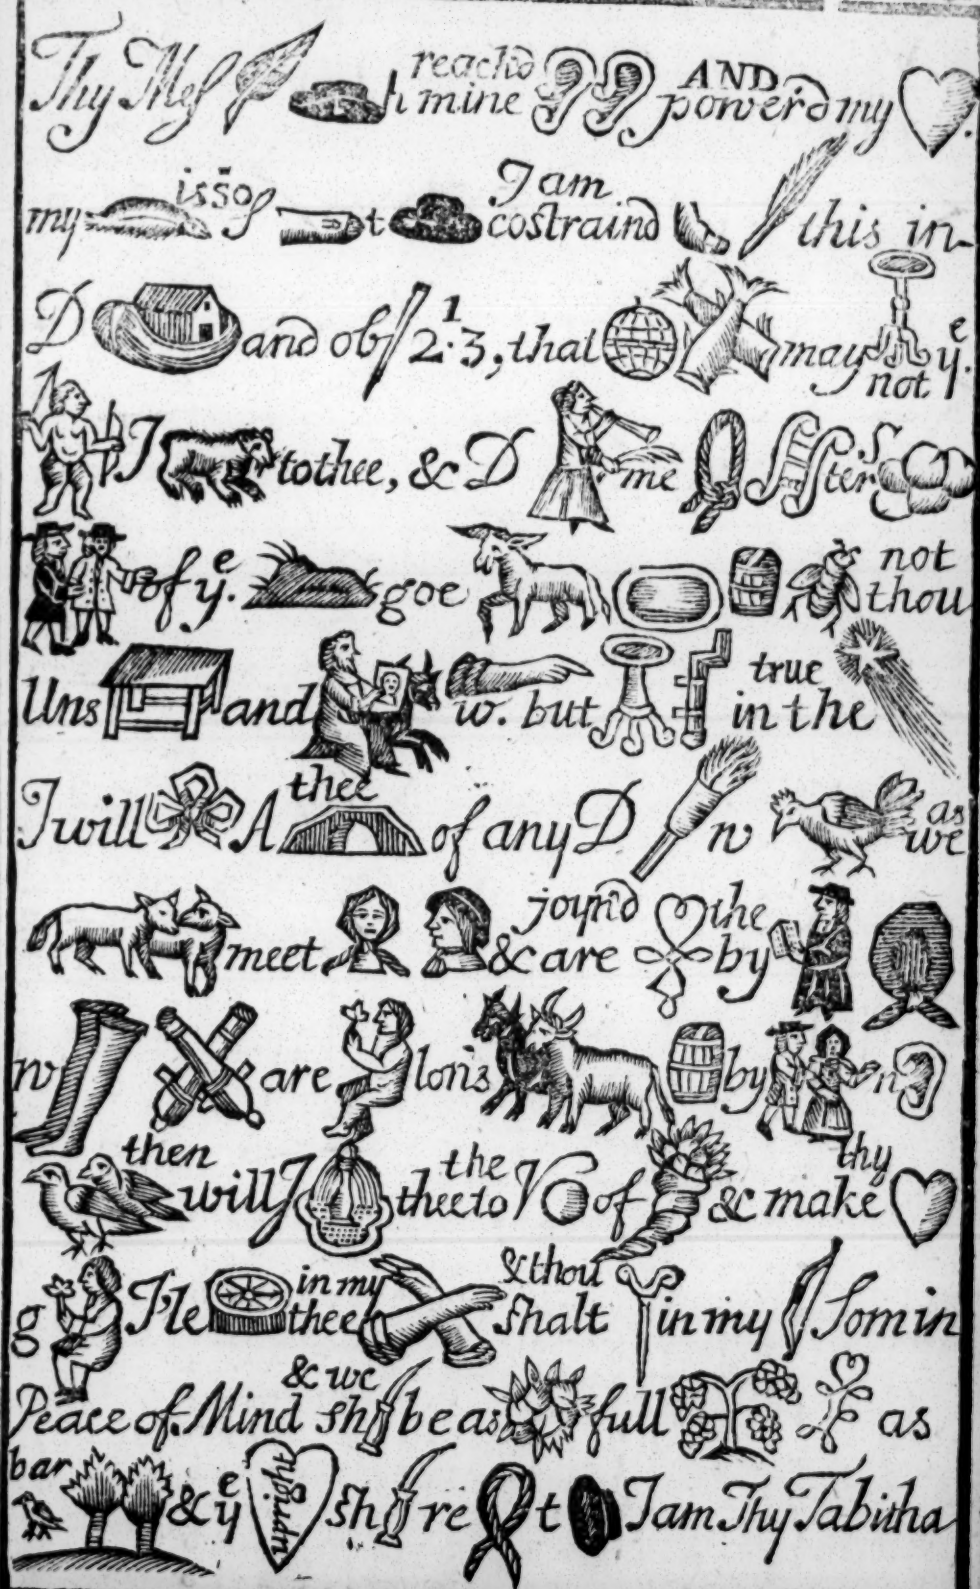 Thy Mes h reach'd mine AND power'd my
my is so S t I am costraind this in-
D and ob 2.1.3, that may not yᵉ.
I to thee, & D me ster S
of yᵉ. goe not thou
Uns and w. but true in the
I will A thee of any D n as we
meet & are joyn'd the by
n are lons by n
then will I thee to the V of & make thy
g I'le thee in my & thou shalt in my som in
Peace of Mind & we sh be as full as
bar & yᵉ sh re t I am Thy Tabitha